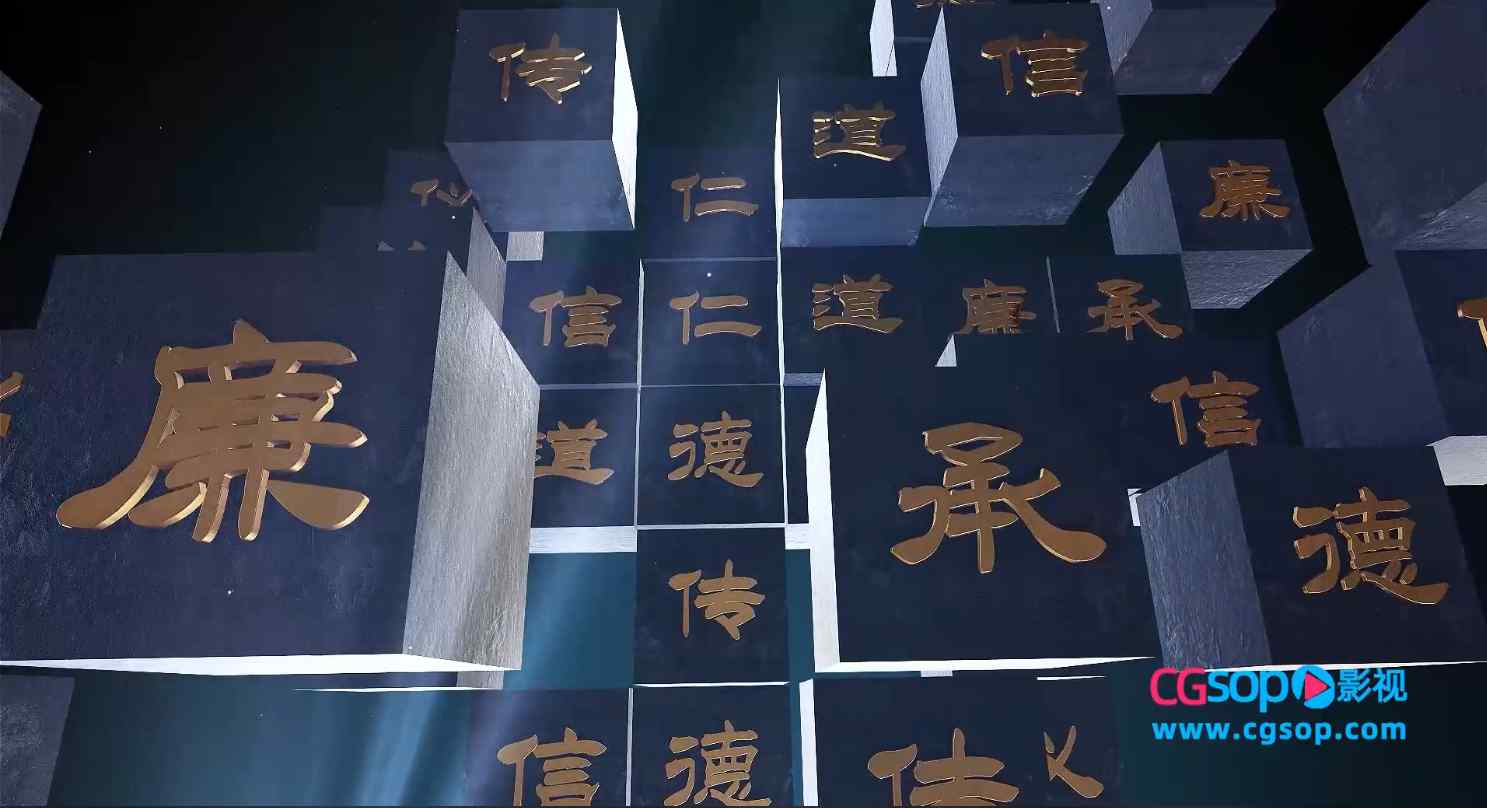 传
信
道
仁
廉
信
仁
道
廉
承
廉
信
道
德
承
德
传
信
德
CGsop影视
www.cgsop.com